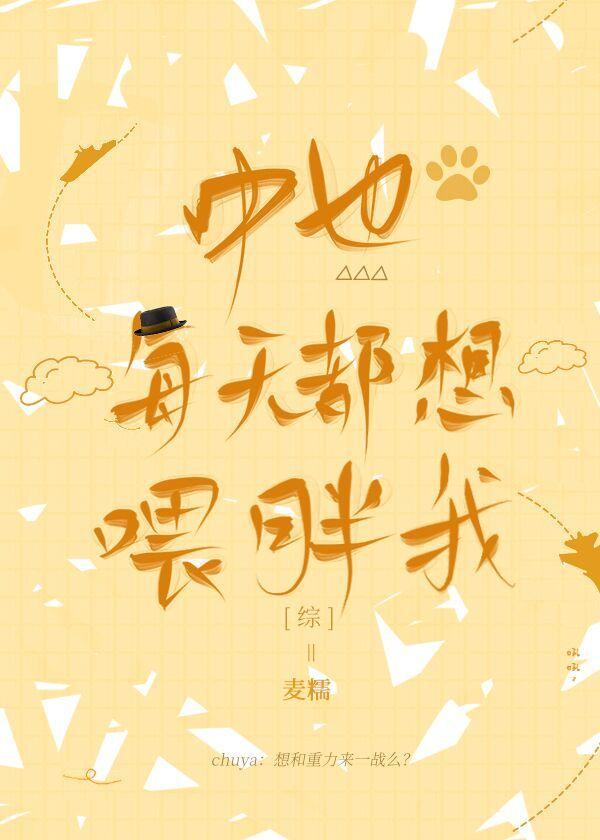 中也
△△△
每天都想
喂胖我
[综]
||
麦糯
吼
吼
chuya：想和重力来一战么？